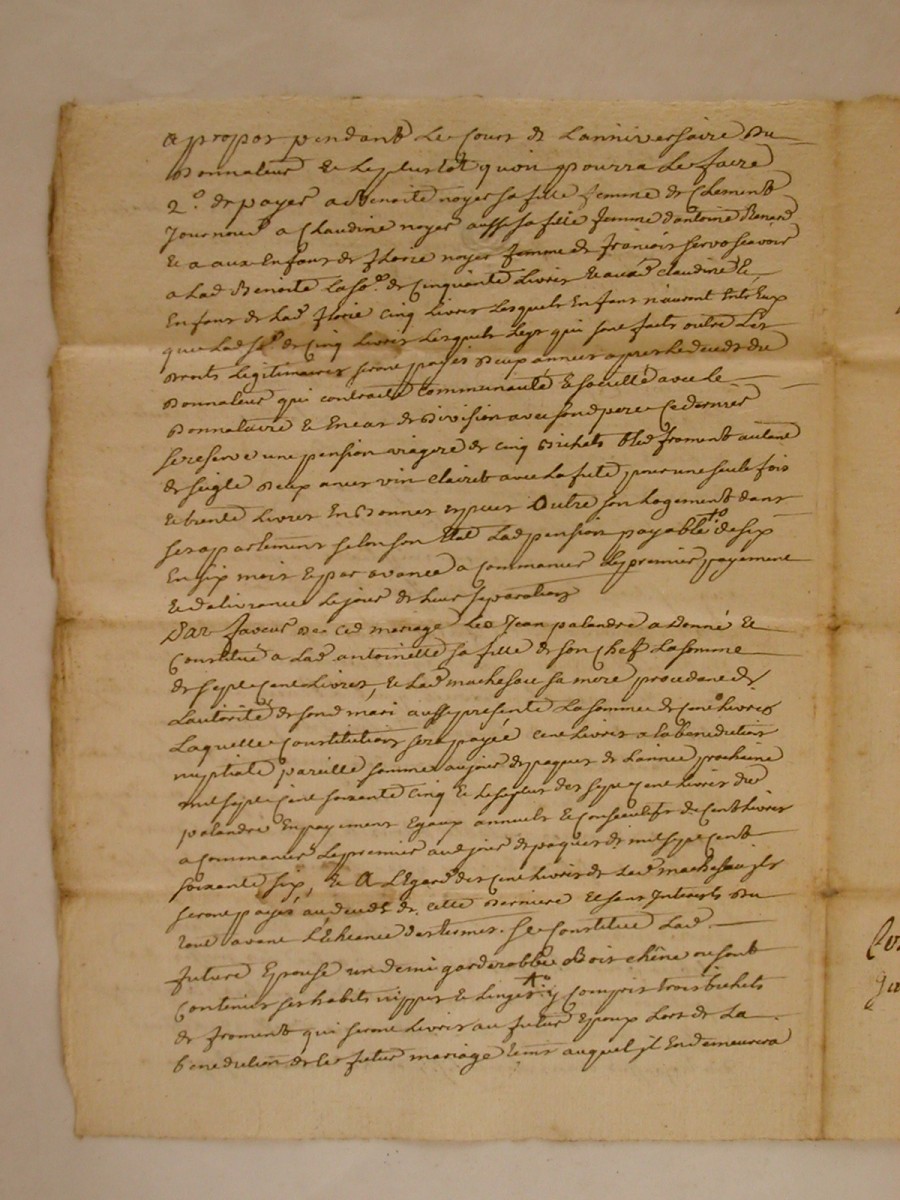 a propos pendant le cours de lanniversaire du
donnateur et le plustot quon pourra le faire
2.o de payer a Benoite noyer sa fille femme de Clement
Journoud a Claudine noyer aussy sa fille femme dantoine Renard
et a aux Enfans de florie noyer femme de francois servo scavoir
a lad Benoite la so.e de Cinquante livres et aux.d Claudine et
Enfans de lad florie Cinq livres lesquels Enfans nauront Entreux
que lad so.e de Cinq livres lesquels legs qui sont faits outre les
droits legitimaires seront payés deux années apres le deceds du
donnateur qui contracte communauté et société avec le
donnataire et En cas de division avec son pere Ce dernier
se reserve une pension viagere de Cinq Bichets bled froment autant
de seigle deux anées vin clairet avec la fute pour une seule fois
et trente livres En Bonnes especes outre son logement dans
ses appartements selon son Etat lad pension payable de six
En six mois et par avance a commancer le premier payement
et delivrance le jour de leur separation
Par faveur de ced mariage led Jean palandre a donné et
Constitué a lad antoinette sa fille de son Chef la somme
de sept Cent livres, et lad machesau sa mere procedant de
lautorité de sond mari aussy presente la somme de Cent livres
laquelle Constitution sera payée Cent livres a la benediction
nuptiale pareille somme au jour de paques de lannée prochaine
mil sept Cent soixante Cinq et le surplus des sept Cent livres dud
palandre En payements Egaux annuels et Consecutifs de Cent livres
a commancer le premier aud jour de paques de mil sept Cent
soixante six, et a lEgard des Cent livres de lad machesau ils
seront payés au deceds de cette derniere et sans Interests du
tout avant lEheance des termes. se constitue lad
future Epouse un demi garderobbe Bois chêne ou sont
contenus ses habits nippes et linges y Compris trois bichets
de froment qui seront livrés au futur Epoux lors de la
benediction de le futur mariage tems auquel il En demeurera